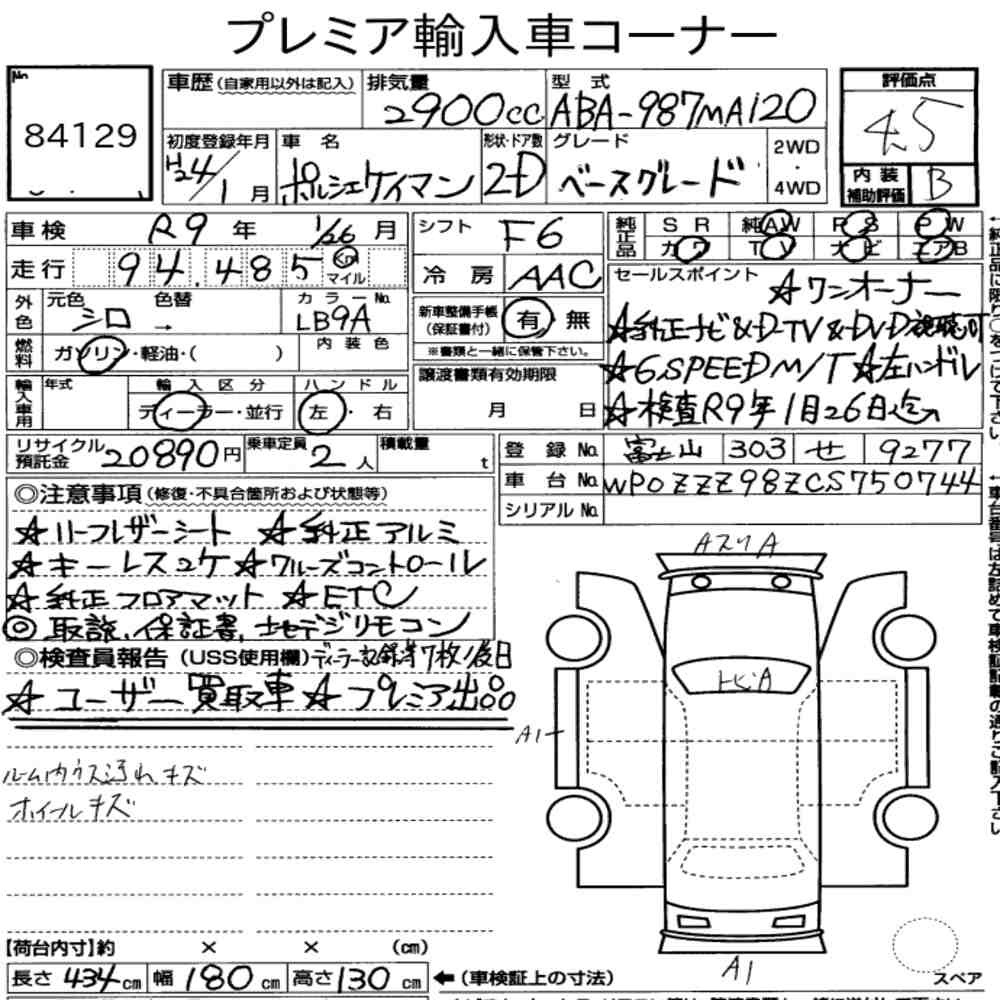 プレミア輸入車コーナー
No.
84129
車歴(自家用以外は記入)
排気量
2900cc
型式
ABA-987MA120
評価点
4.5
初度登録年月
H24/1月
車名
ポルシェケイマン
形状・ドア数
2-D
グレード
ベースグレード
2WD
・
4WD
内装補助評価
B
車検 R9年 1/26月
走行 94,485 Km マイル
シフト F6
冷房 AAC
純正品 SR 純AW PS PW
カワ TV ナビ エアB
外色 元色 シロ → 色替
カラーNo. LB9A
内装色
燃料 ガソリン・軽油・( )
新車整備手帳(保証書付) 有 無
※書類と一緒に保管下さい。
セールスポイント ☆ワンオーナー
☆純正ナビ&D-TV&DVD視聴可
☆6SPEEDM/T ☆左ハンドル
☆検査R9年1月26日迄
輸入車用 年式
輸入区分
ディーラー・並行
ハンドル
左・右
譲渡書類有効期限
月 日
リサイクル預託金 20890円
乗車定員 2人
積載量 t
登録No. 富士山 303 せ 9277
車台No. WP0ZZZ98ZCS750744
シリアルNo.
◎注意事項(修復・不具合箇所および状態等)
☆ハーフレザーシート ☆純正アルミ
☆キーレスユケ ☆クルーズコントロール
☆純正フロアマット ☆ETC
◎取説、保証書、地デジリモコン
◎検査員報告(USS使用欄)ディーラー記録簿7枚/後日
☆ユーザー買取車☆プレミア出品
ルーム内ウス汚れキズ
ホイールキズ
AスリA
トビA
A1
A1
スペア
【荷台内寸】約 × × (cm)
長さ 434cm 幅 180cm 高さ 130cm ←(車検証上の寸法)
↑純正品に限り○をつけて下さい。
↑車台番号は左詰めで車検証記載の通りご記入下さい。